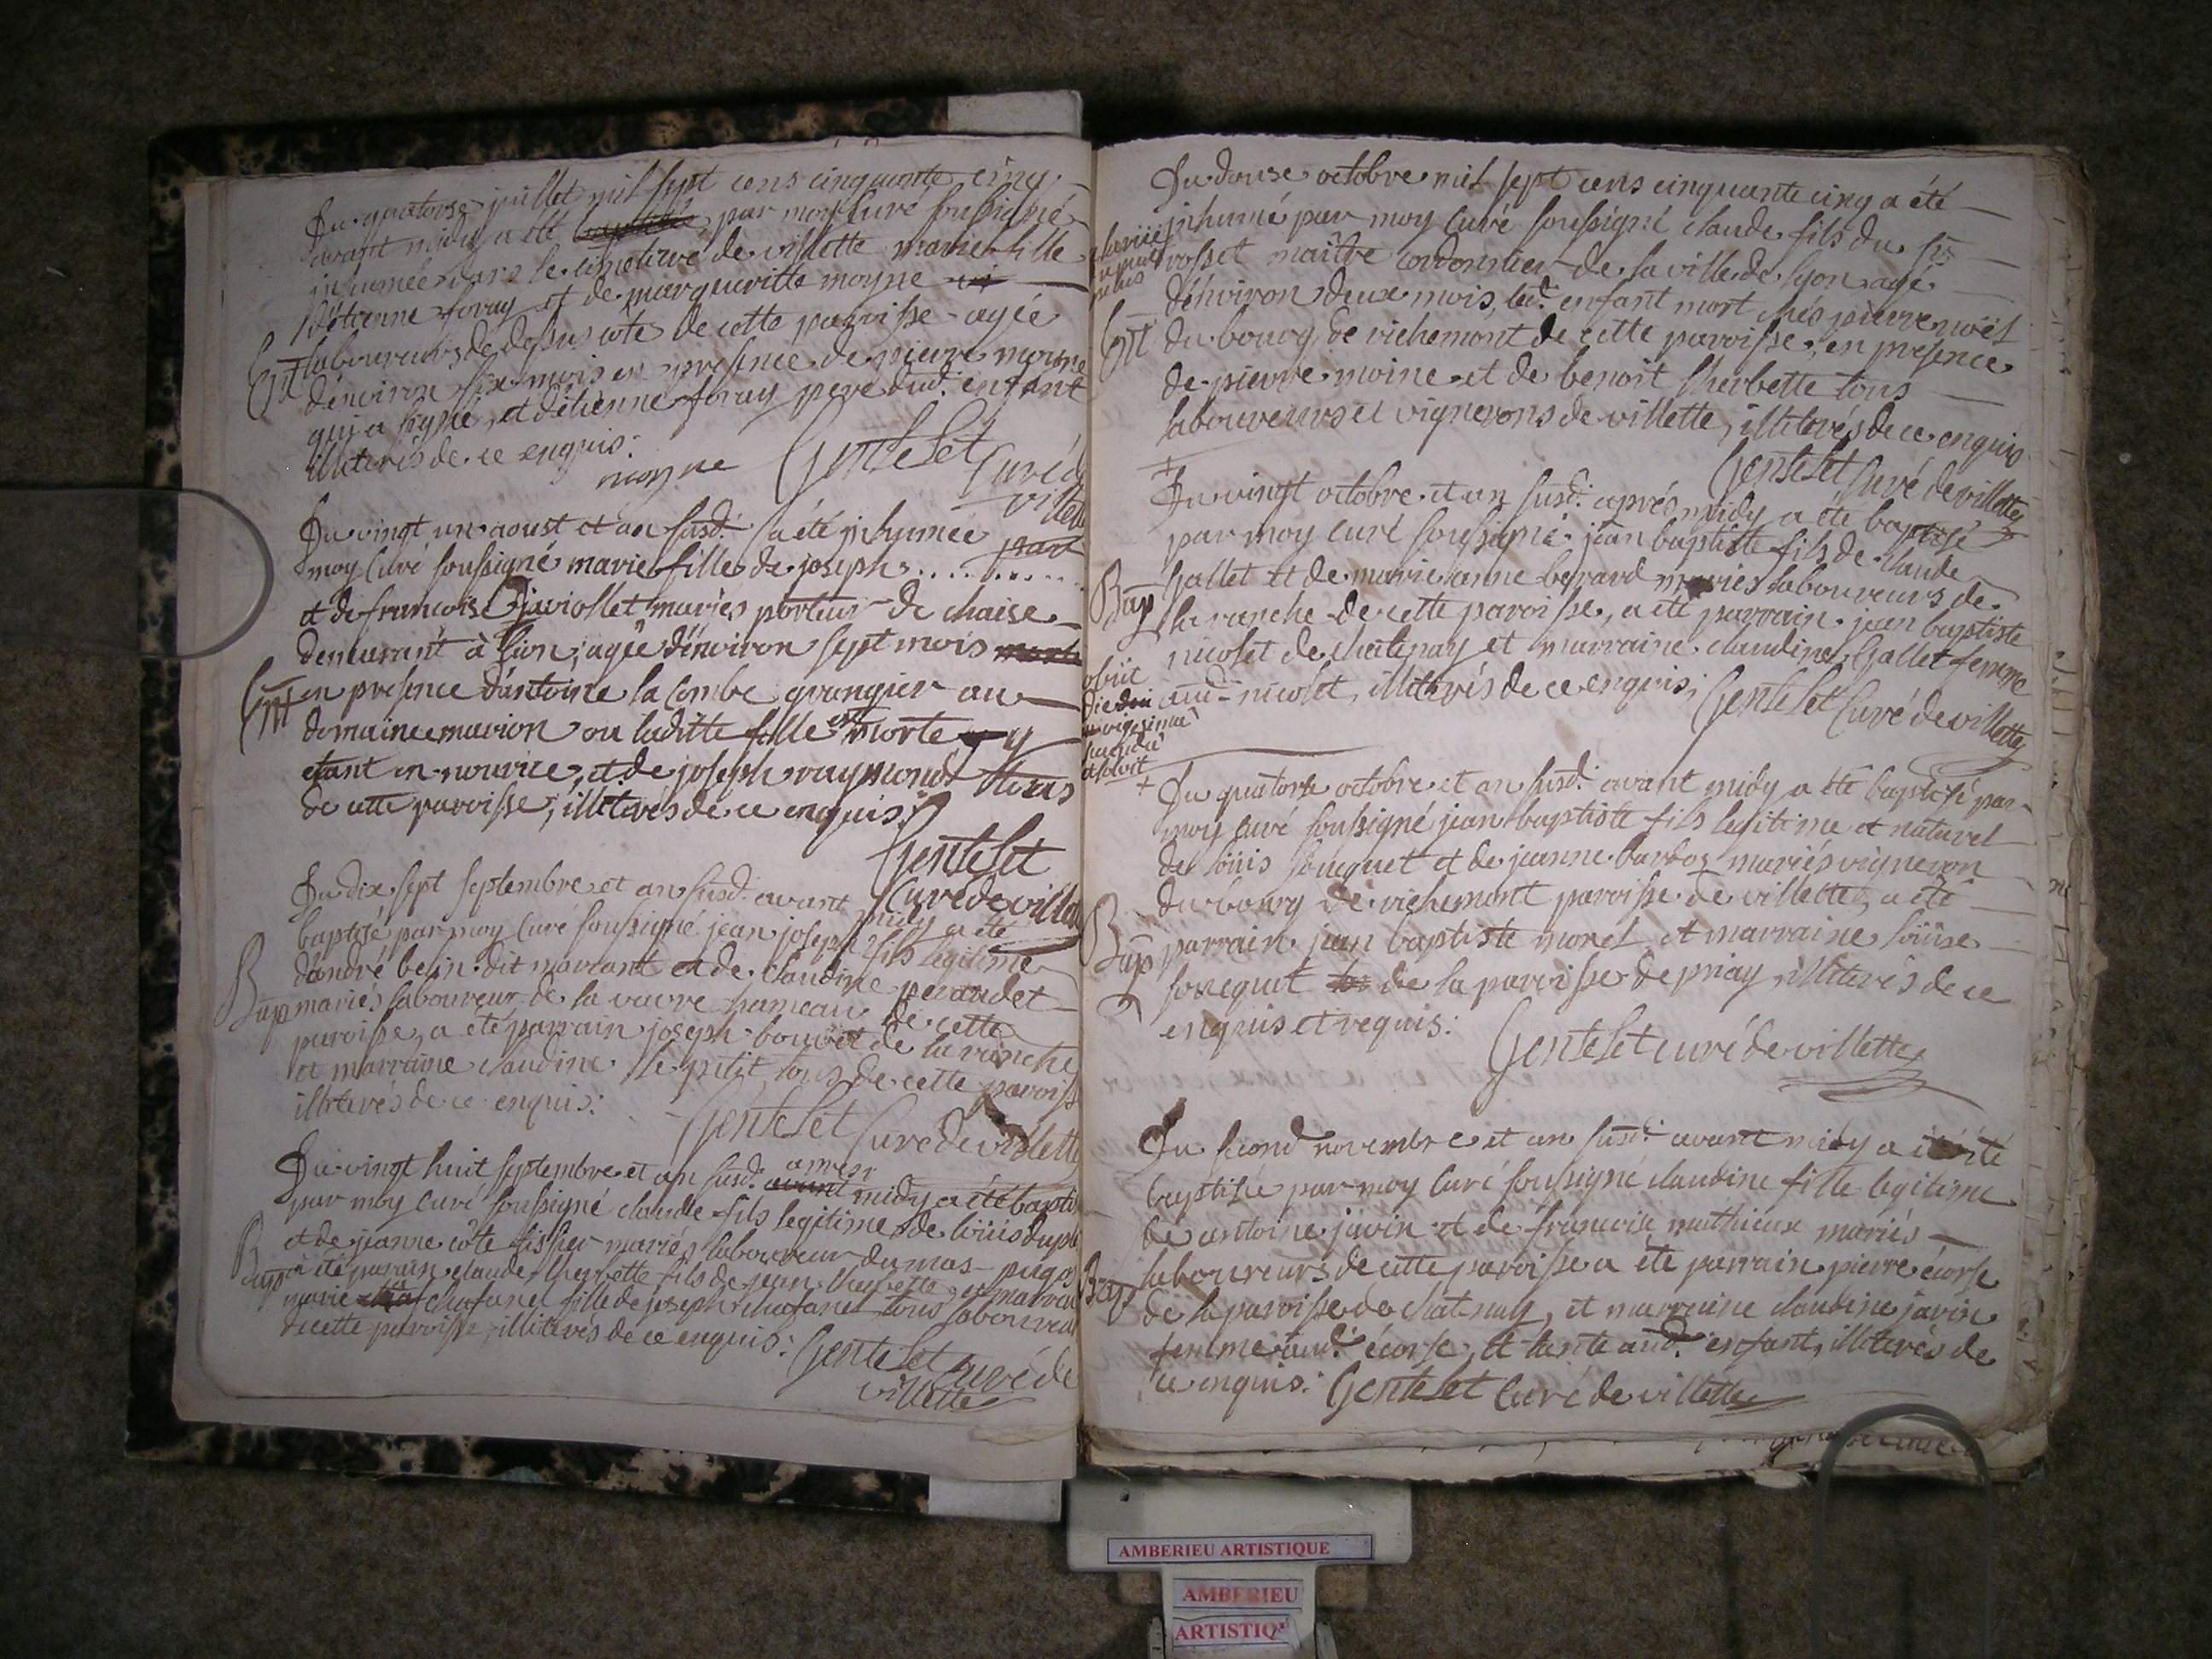 Du quatorse juillet mil sept cens cinquante cinq
avant midy a été baptisée par moy Curé soussigné
jnhumée dans le cimetiere de villette marie fille
d'étienne foray et de margueritte moyne
Ent laboureurs de dessus cote de cette paroisse agée
d'environ six mois en presence de pierre moyne
qui a signé, et d'étienne foray pere dud. enfant
illiterés de ce enquis.
moyne Gentelet Curé de
villette
Du vingt un aoust et an susd. a été jnhumée par
moy Curé soussigné marie fille de joseph . . . . . . . .
et de francoise javiollet mariés porteur de chaise
demeurant à lion, agée d'environ sept mois morte
Ent en presence d'antoine la Combe grangier au
domaine marion ou laditte fille est morte y
etant en nourice, et de joseph raymond tous
de cette paroisse, illiterés de ce enquis.
Gentelet
Curé de villette
Du dix sept septembre et an susd. avant midy a été
baptisé par moy Curé soussigné jean joseph fils legitime
d'andré belin dit marant et de claudine peraudet
Bap mariés laboureur de la vavre hameau de cette
paroisse, a été parrain joseph bouvet de la ranche
et marraine claudine le petit tous de cette paroisse
illiterés de ce enquis.
Gentelet Curé de villette
Du vingt huit septembre et an susd. avant apres midy a été baptisé
par moy curé soussigné claude fils legitime de loüis
et de jeanne côte mariés laboureur du mas
Bap a été parrain claude therbette fils de jean therbette, et marraine
marie chafanel fille de joseph chafanel tous laboureurs
de cette paroisse, illiterés de ce enquis.
Gentelet Curé de
villette
Du douse octobre mil sept cens cinquante cinq a été
jnhumé par moy Curé soussigné claude fils du sr
rosset maitre cordonnier de la ville de lyon agé
d'environ deux mois, led. enfant mort chés pierre noël
Ent du bourg de richemont de cette paroisse, en presence
de pierre moine et de benoit therbette tous
laboureurs et vignerons de villette, illiterés de ce enquis
Gentelet Curé de villette
+
Du vingt octobre et an susd. aprés midy a été baptisé
par moy curé soussigné jean baptiste fils de claude
Bap Gallet et de marie anne berard mariés laboureurs de
la ranche de cette paroisse, a été parrain jean baptiste
nicolet de chatenay et marraine claudine Gallet femme
obiit
die
aud. nicolet, illiterés de ce enquis, Gentelet Curé de villette
+
Du quatorse octobre et an susd. avant midy a été baptisé par
moy curé soussigné jean baptiste fils legitime et naturel
de loüis fouquet et de jeanne bardoz mariés vigneron
du bourg de richemont paroisse de villette, a été
Bap parrain jean baptiste morel et marraine loüise
fouquet de la paroisse de priay illiterés de ce
enquis et requis.
Gentelet curé de villette
Du second novembre et an susd. avant midy a été
baptisée par moy Curé soussigné claudine fille legitime
de antoine javin et de francoise mathieux mariés
Bap laboureurs de cette paroisse a été parrain pierre écorse
de la paroisse de chatenay, et marraine claudine javin
femme aud. écorse, et tante aud. enfant, illiterés de
ce enquis. Gentelet Curé de villette
AMBERIEU ARTISTIQUE
AMBERIEU
ARTISTIQ